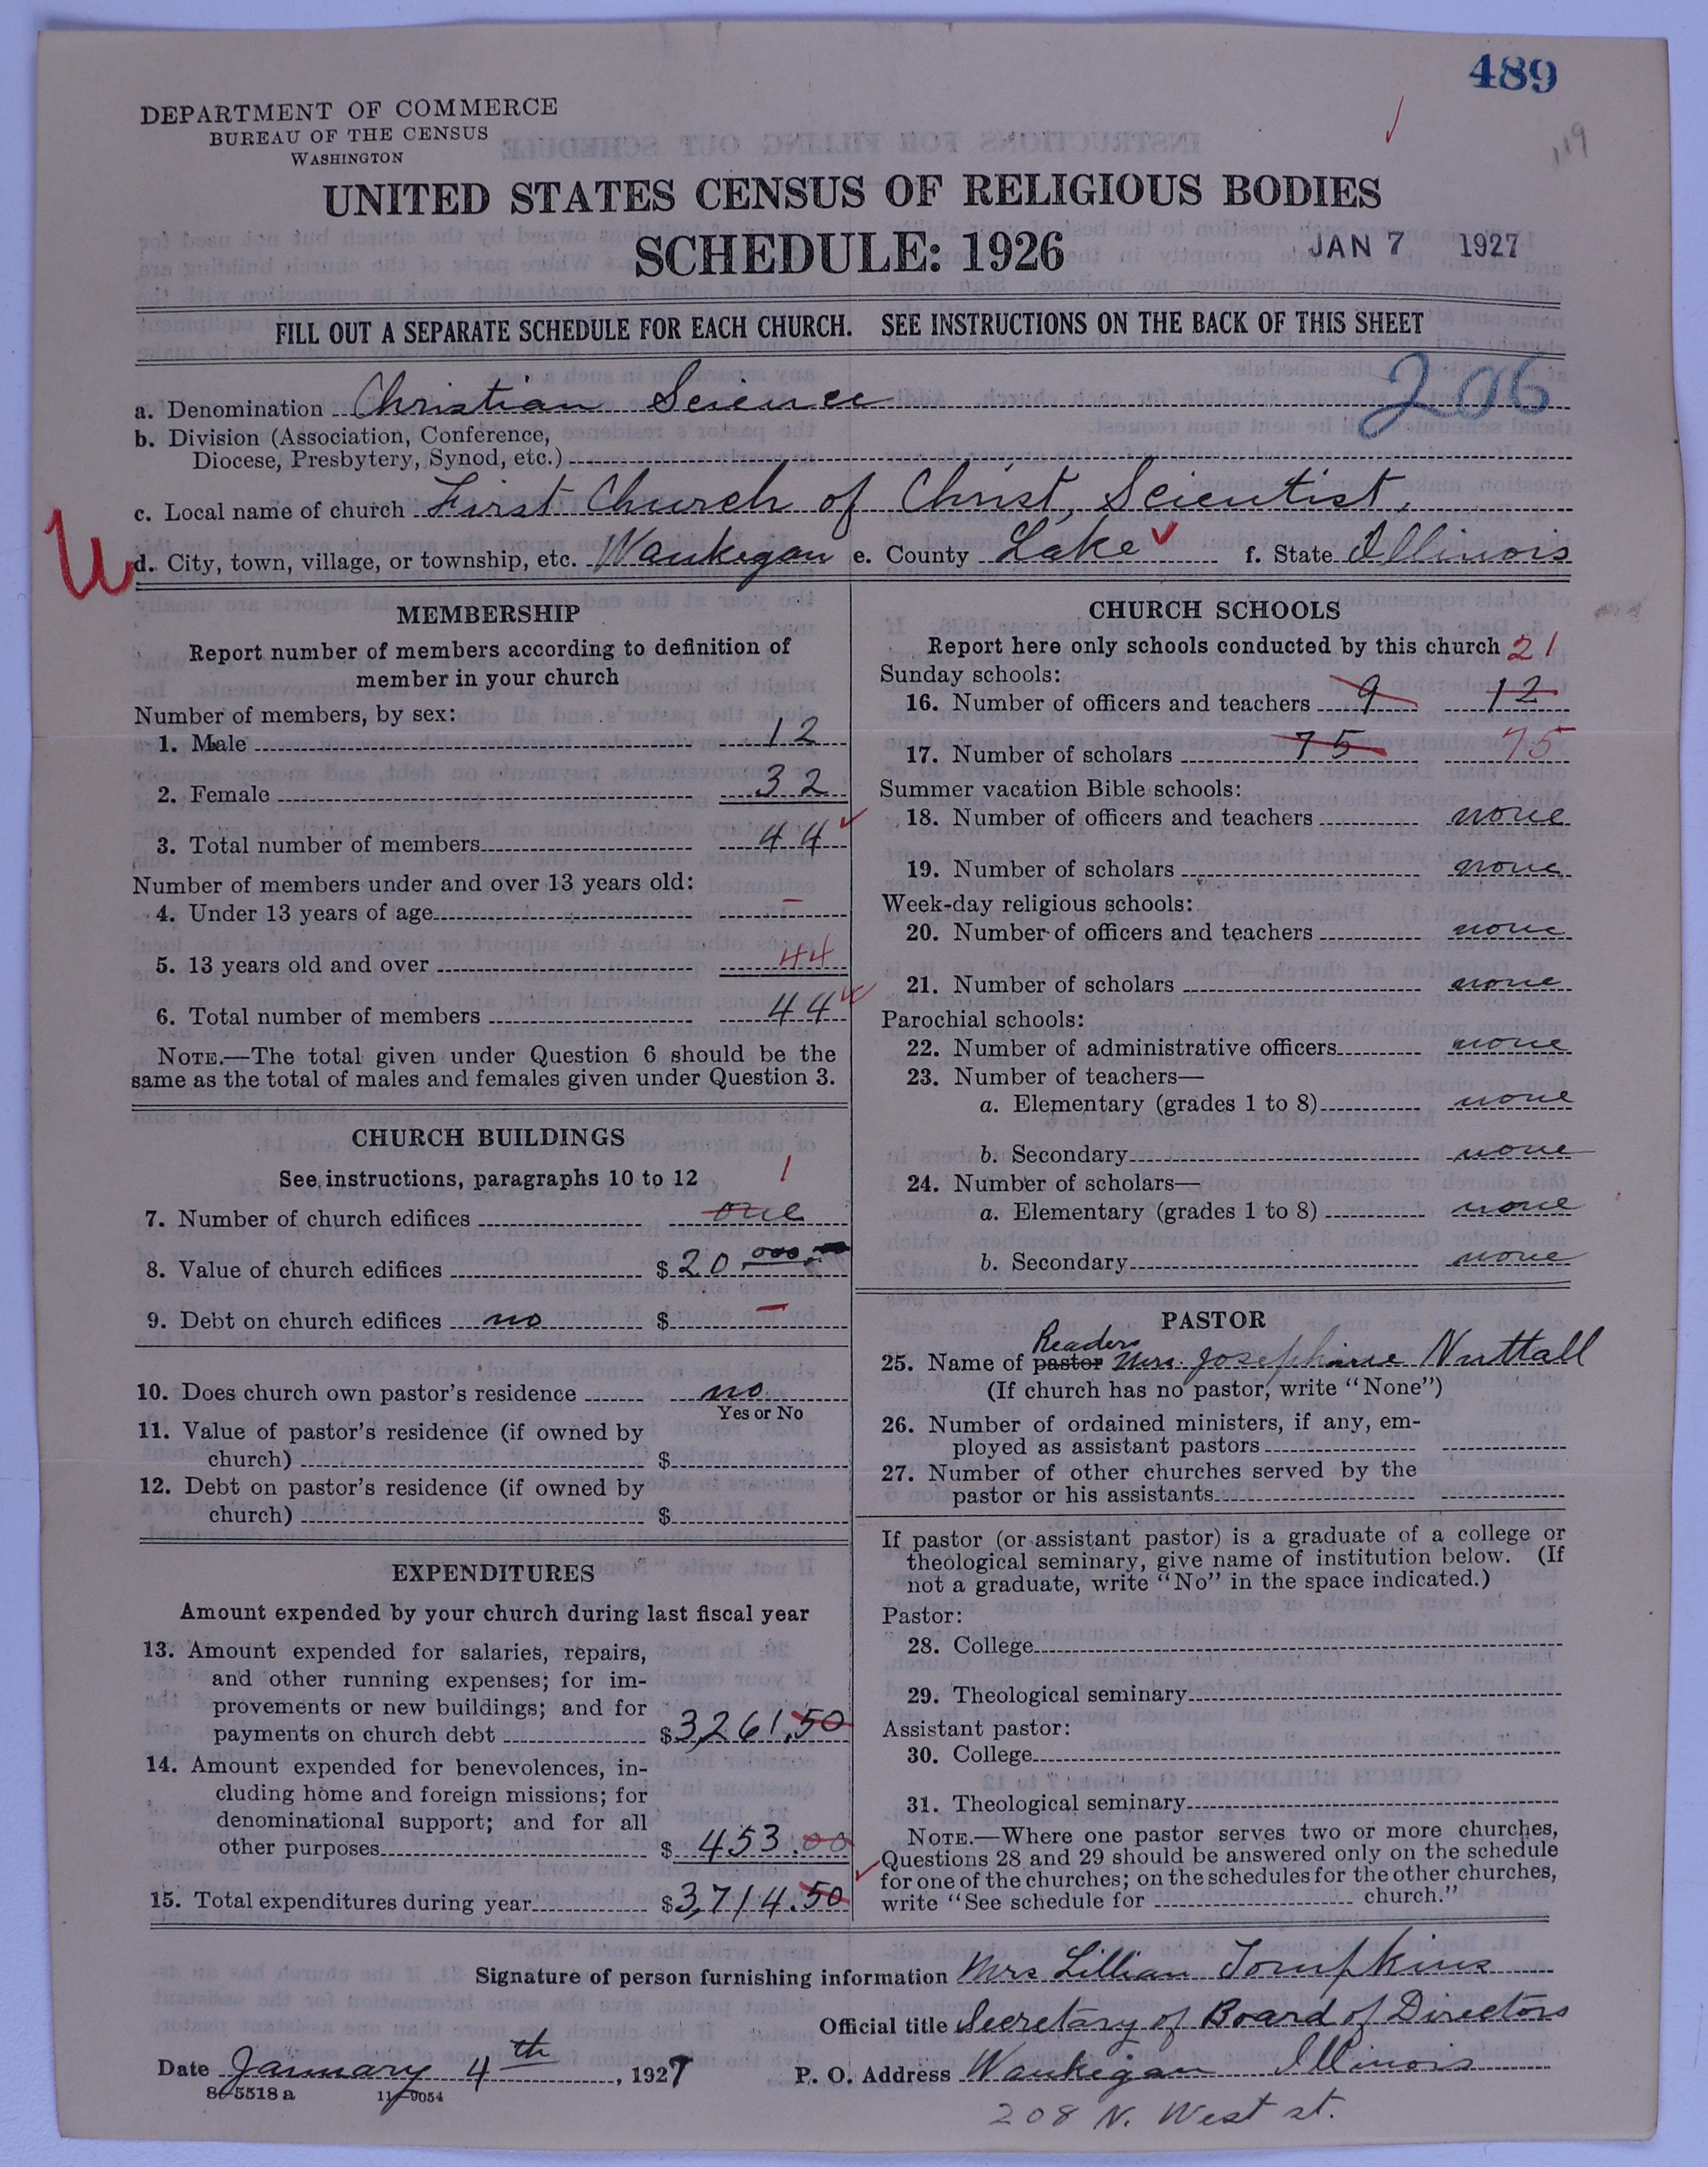 489
DEPARTMENT OF COMMERCE
BUREAU OF THE CENSUS
WASHINGTON
119
UNITED STATES CENSUS OF RELIGIOUS BODIES
SCHEDULE: 1926
JAN 7 1927
FILL OUT A SEPARATE SCHEDULE FOR EACH CHURCH. SEE INSTRUCTIONS ON THE BACK OF THIS SHEET
206
a. Denomination Christian Science
b. Division (Association, Conference,
Diocese, Presbytery, Synod, etc.)
c. Local name of church First Church of Christ, Scientist,
d. City, town, village, or township, etc. Waukegan e. County Lake f. State Illinois
MEMBERSHIP
Report number of members according to definition of
member in your church
Number of members, by sex:
1. Male 12
2. Female 32
3. Total number of members 44
Number of members under and over 13 years old:
4. Under 13 years of age –
5. 13 years old and over 44
6. Total number of members 44
NOTE.—The total given under Question 6 should be the
same as the total of males and females given under Question 3.
CHURCH BUILDINGS
See instructions, paragraphs 10 to 12
1
7. Number of church edifices one
8. Value of church edifices $20,000.
9. Debt on church edifices no $ –
10. Does church own pastor's residence no
Yes or No
11. Value of pastor's residence (if owned by
church) $
12. Debt on pastor's residence (if owned by
church) $
EXPENDITURES
Amount expended by your church during last fiscal year
13. Amount expended for salaries, repairs,
and other running expenses; for im-
provements or new buildings; and for
payments on church debt $3,261.50
14. Amount expended for benevolences, in-
cluding home and foreign missions; for
denominational support; and for all
other purposes $453.00
15. Total expenditures during year $3,714.50
CHURCH SCHOOLS
Report here only schools conducted by this church 21
Sunday schools:
16. Number of officers and teachers 9 12
17. Number of scholars 75 75
Summer vacation Bible schools:
18. Number of officers and teachers none
19. Number of scholars none
Week-day religious schools:
20. Number of officers and teachers none
21. Number of scholars none
Parochial schools:
22. Number of administrative officers none
23. Number of teachers—
a. Elementary (grades 1 to 8) none
b. Secondary none
24. Number of scholars—
a. Elementary (grades 1 to 8) none
b. Secondary none
PASTOR
Readers
25. Name of pastor Mrs. Josephine Nuttall
(If church has no pastor, write "None")
26. Number of ordained ministers, if any, em-
ployed as assistant pastors
27. Number of other churches served by the
pastor or his assistants
If pastor (or assistant pastor) is a graduate of a college or
theological seminary, give name of institution below. (If
not a graduate, write "No" in the space indicated.)
Pastor:
28. College
29. Theological seminary
Assistant pastor:
30. College
31. Theological seminary
NOTE.—Where one pastor serves two or more churches,
Questions 28 and 29 should be answered only on the schedule
for one of the churches; on the schedules for the other churches,
write "See schedule for church."
Signature of person furnishing information Mrs Lillian Tompkins
Official title Secretary of Board of Directors
Date January 4th, 1927 P. O. Address Waukegan Illinois
8-5518a 11-9054
208 N. West st.